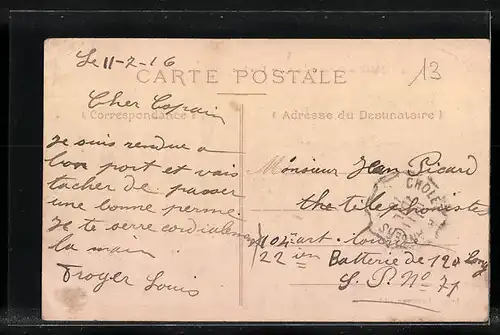 Le 11-2-16
13
CARTE POSTALE
Cher Copain
( Correspondance )
( Adresse du Destinataire )
Je suis rendue a
bon port et vais
tacher de passer
une bonne perme.
Je te serre cordialement
la main
Troyer Louis
Monsieur Jean Picard
the telephoniste
CHOLET
102 art. lourde
22 ien Batterie de 120 Long
S. P. No 77